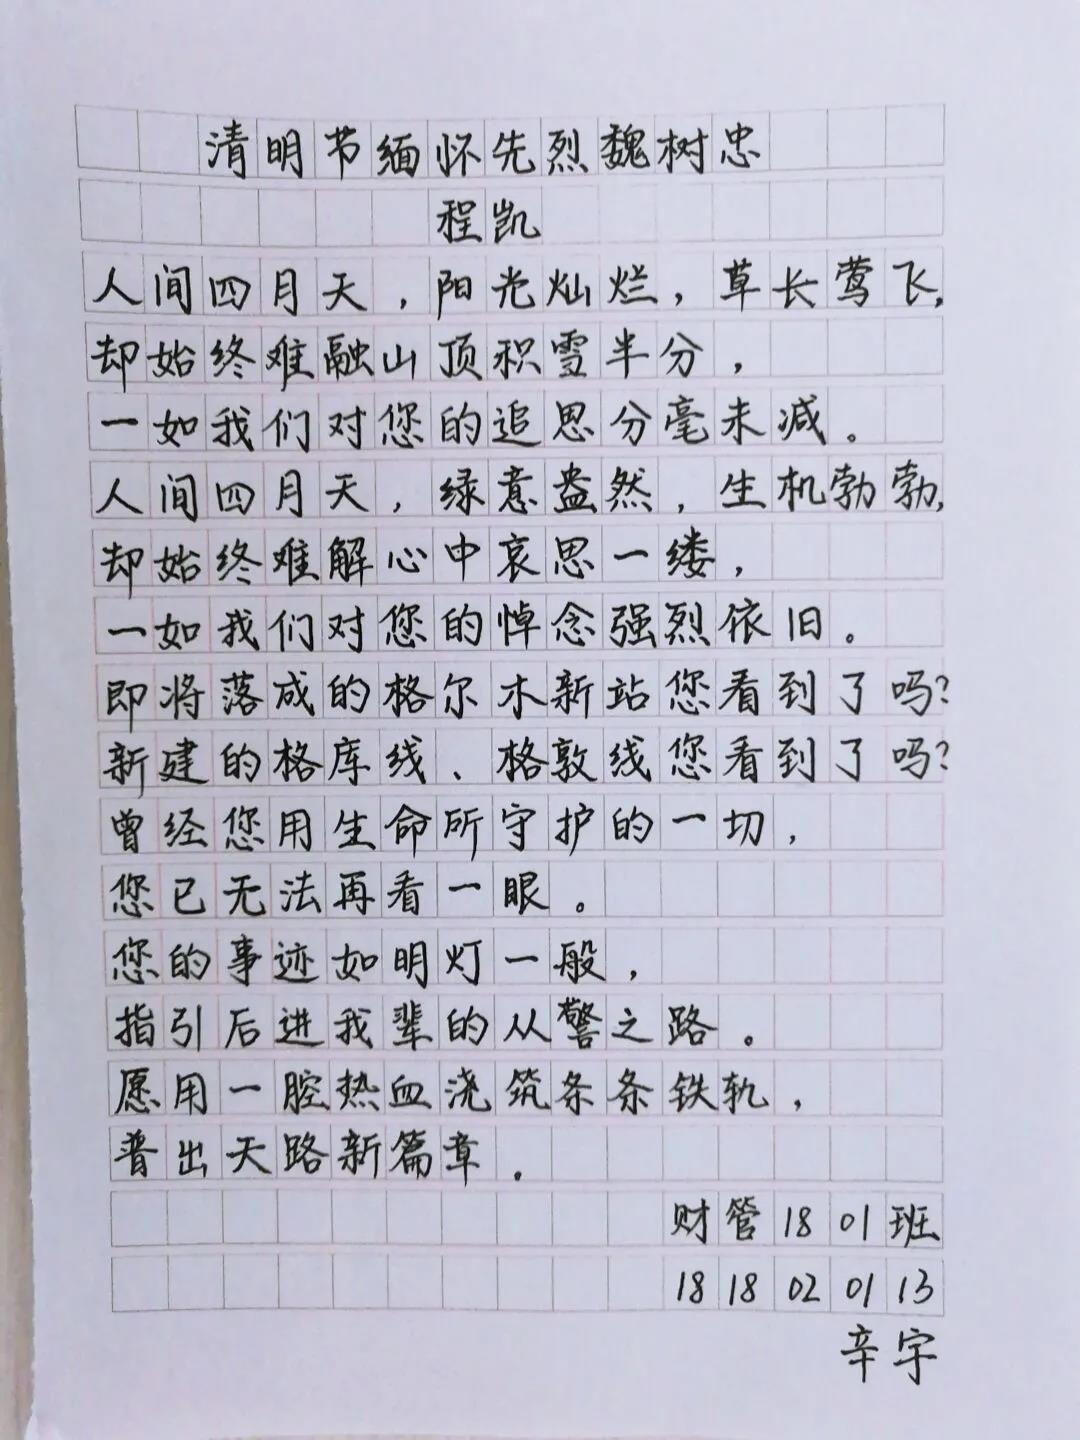 清明节缅怀先烈魏树忠
程凯
人间四月天，阳光灿烂，草长莺飞，
却始终难融山顶积雪半分，
一如我们对您的追思分毫未减。
人间四月天，绿意盎然，生机勃勃，
却始终难解心中哀思一缕，
一如我们对您的悼念强烈依旧。
即将落成的格尔木新站您看到了吗？
新建的格库线、格敦线您看到了吗？
曾经您用生命所守护的一切，
您已无法再看一眼。
您的事迹如明灯一般，
指引后进我辈的从警之路。
愿用一腔热血浇筑条条铁轨，
普出天路新篇章．
财管1801班
1818020113
辛宇